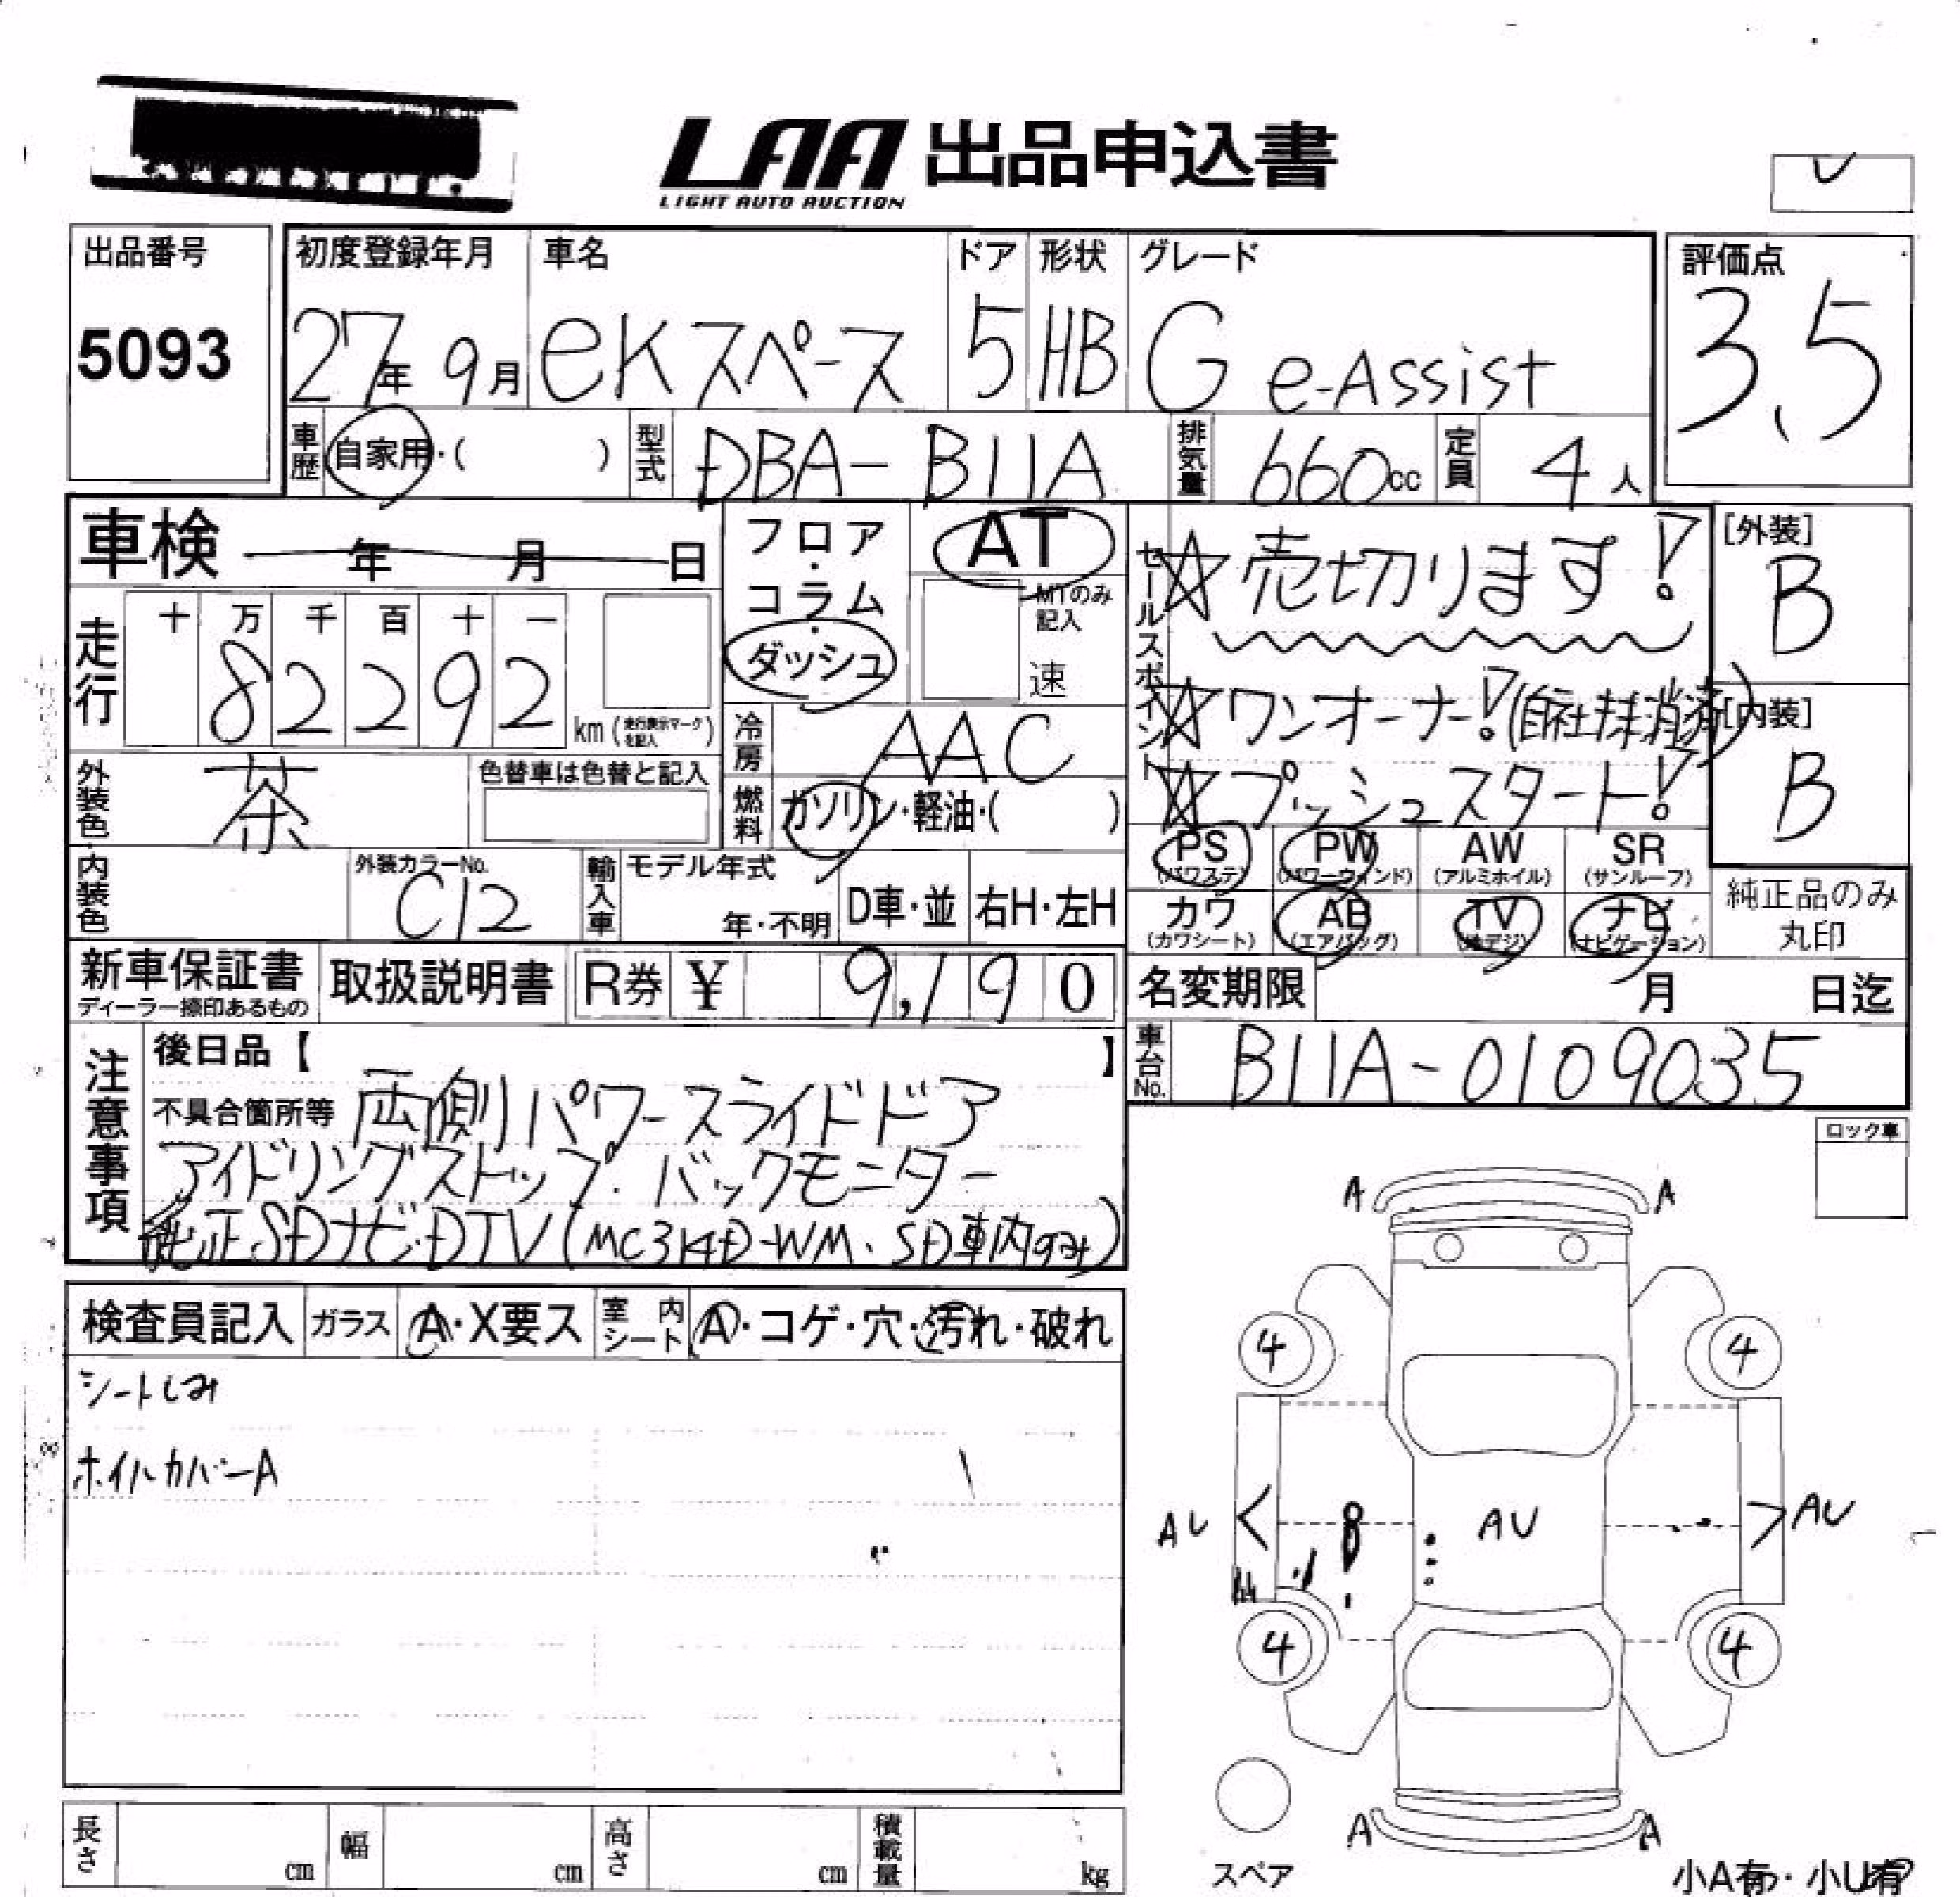 LAA 出品申込書
LIGHT AUTO AUCTION
出品番号
5093
初度登録年月 車名 ドア 形状 グレード
27年 9月 eKスペース 5 HB G e-Assist
評価点
3.5
車歴 自家用・( ) 型式 DBA-B11A 排気量 660cc 定員 4人
車検 年 月 日
フロア・コラム・ダッシュ
AT
MTのみ記入
速
走行 十 万 千 百 十 一
82292 km (走行表示マークを記入)
冷房 AAC
外装色・内装色
茶
色替車は色替と記入
燃料 ガソリン・軽油・( )
外装カラーNo.
C12
輸入車 モデル年式
年・不明 D車・並 右H・左H
セールスポイント
☆売切ります!
☆ワンオーナー!(自社抹消済)
☆プッシュスタート!
[外装]
B
[内装]
B
PS PW AW SR
(パワステ) (パワーウィンド) (アルミホイル) (サンルーフ)
カワ AB TV ナビ
(カワシート) (エアバッグ) (地デジ) (ナビゲーション)
純正品のみ
丸印
新車保証書 取扱説明書 R券 ¥ 9,190
ディーラー捺印あるもの
名変期限 月 日迄
車台No. B11A-0109035
注意事項
後日品【 】
不具合箇所等 両側パワースライドドア
アイドリングストップ.バックモニター
純正SDナビ・DTV(MC314D-WM、SD車内のみ)
ロック車
検査員記入 ガラス A・X要ス 室内シート A・コゲ・穴・汚れ・破れ
シートしみ
ホイルカバーA
A A
4 4
AU AU AU
4 4
A A
スペア
長さ cm 幅 cm 高さ cm 積載量 kg
小A有・小U有